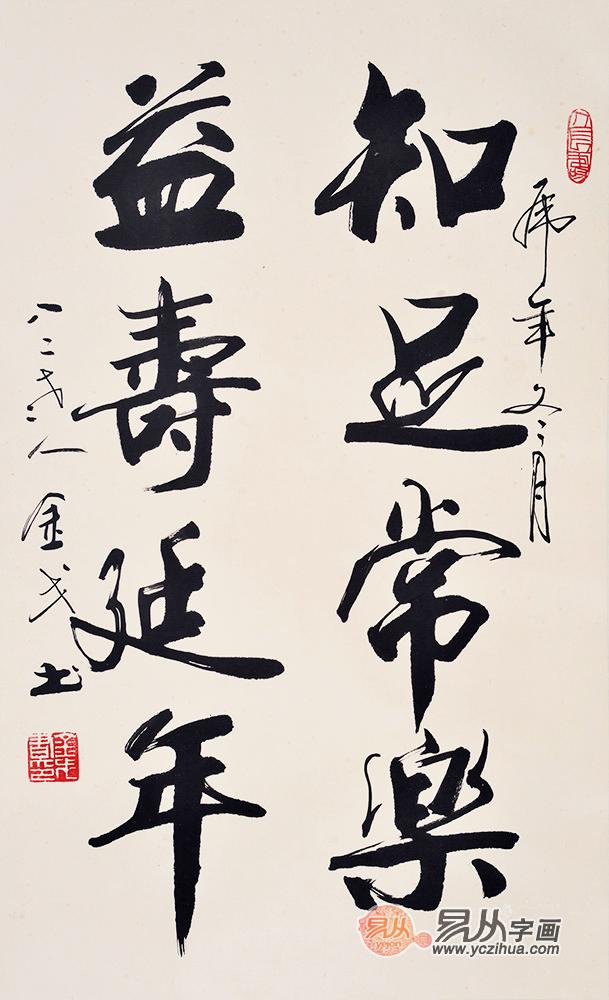 虎年冬月
知足常樂
益壽延年
八二岁人金戈书
易从
易从字画
www.yczihua.com